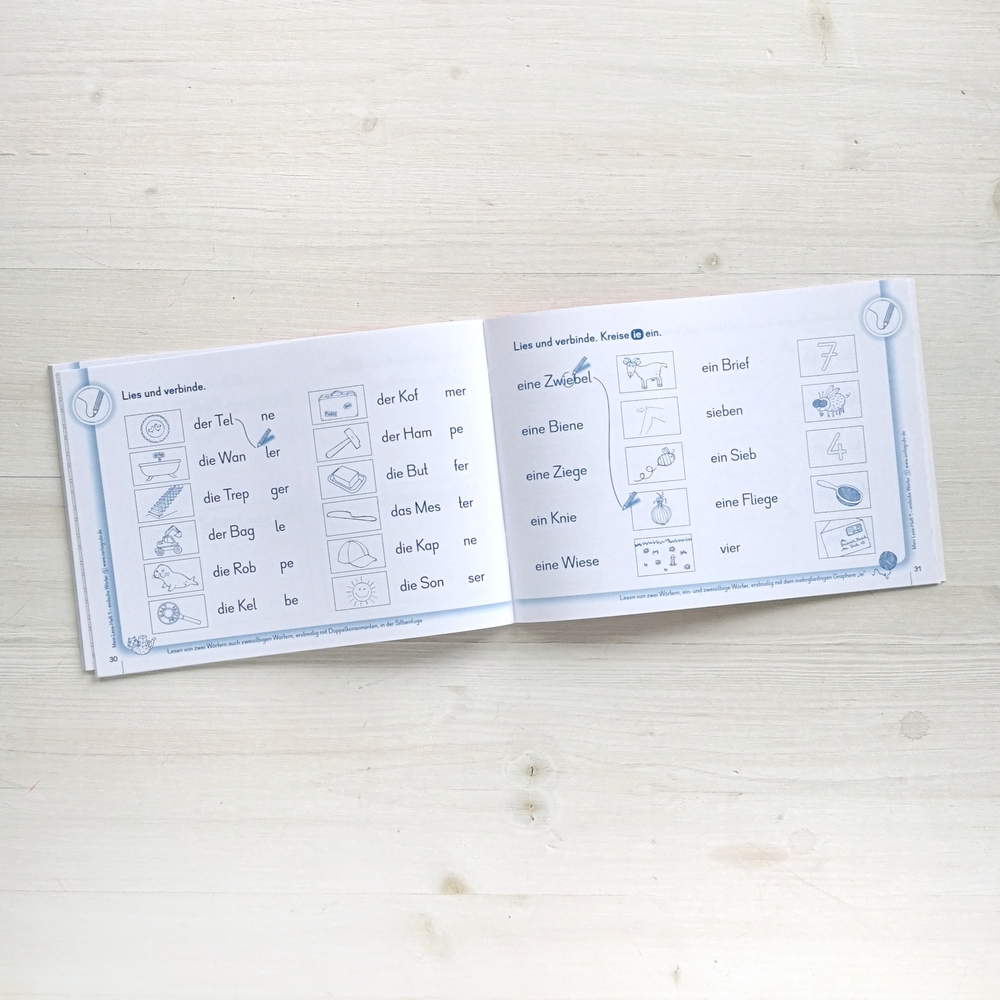 Lies und verbinde.
der Tel ne
die Wan ler
die Trep ger
der Bag le
die Rob pe
die Kel be
der Kof mer
der Ham pe
die But fer
das Mes ter
die Kap ne
die Son ser
Lesen von zwei Wörtern auch zweisilbigen Wörtern, erstmalig mit Doppelkonsonanten, in der Silbenfuge
30
Lies und verbinde. Kreise ie ein.
eine Zwiebel
eine Biene
eine Ziege
ein Knie
eine Wiese
ein Brief
sieben
ein Sieb
eine Fliege
vier
7
4
Lesen von zwei Wörtern, ein- und zweisilbige Wörter, erstmalig mit dem mehrgliedrigen Graphem „ie"
31